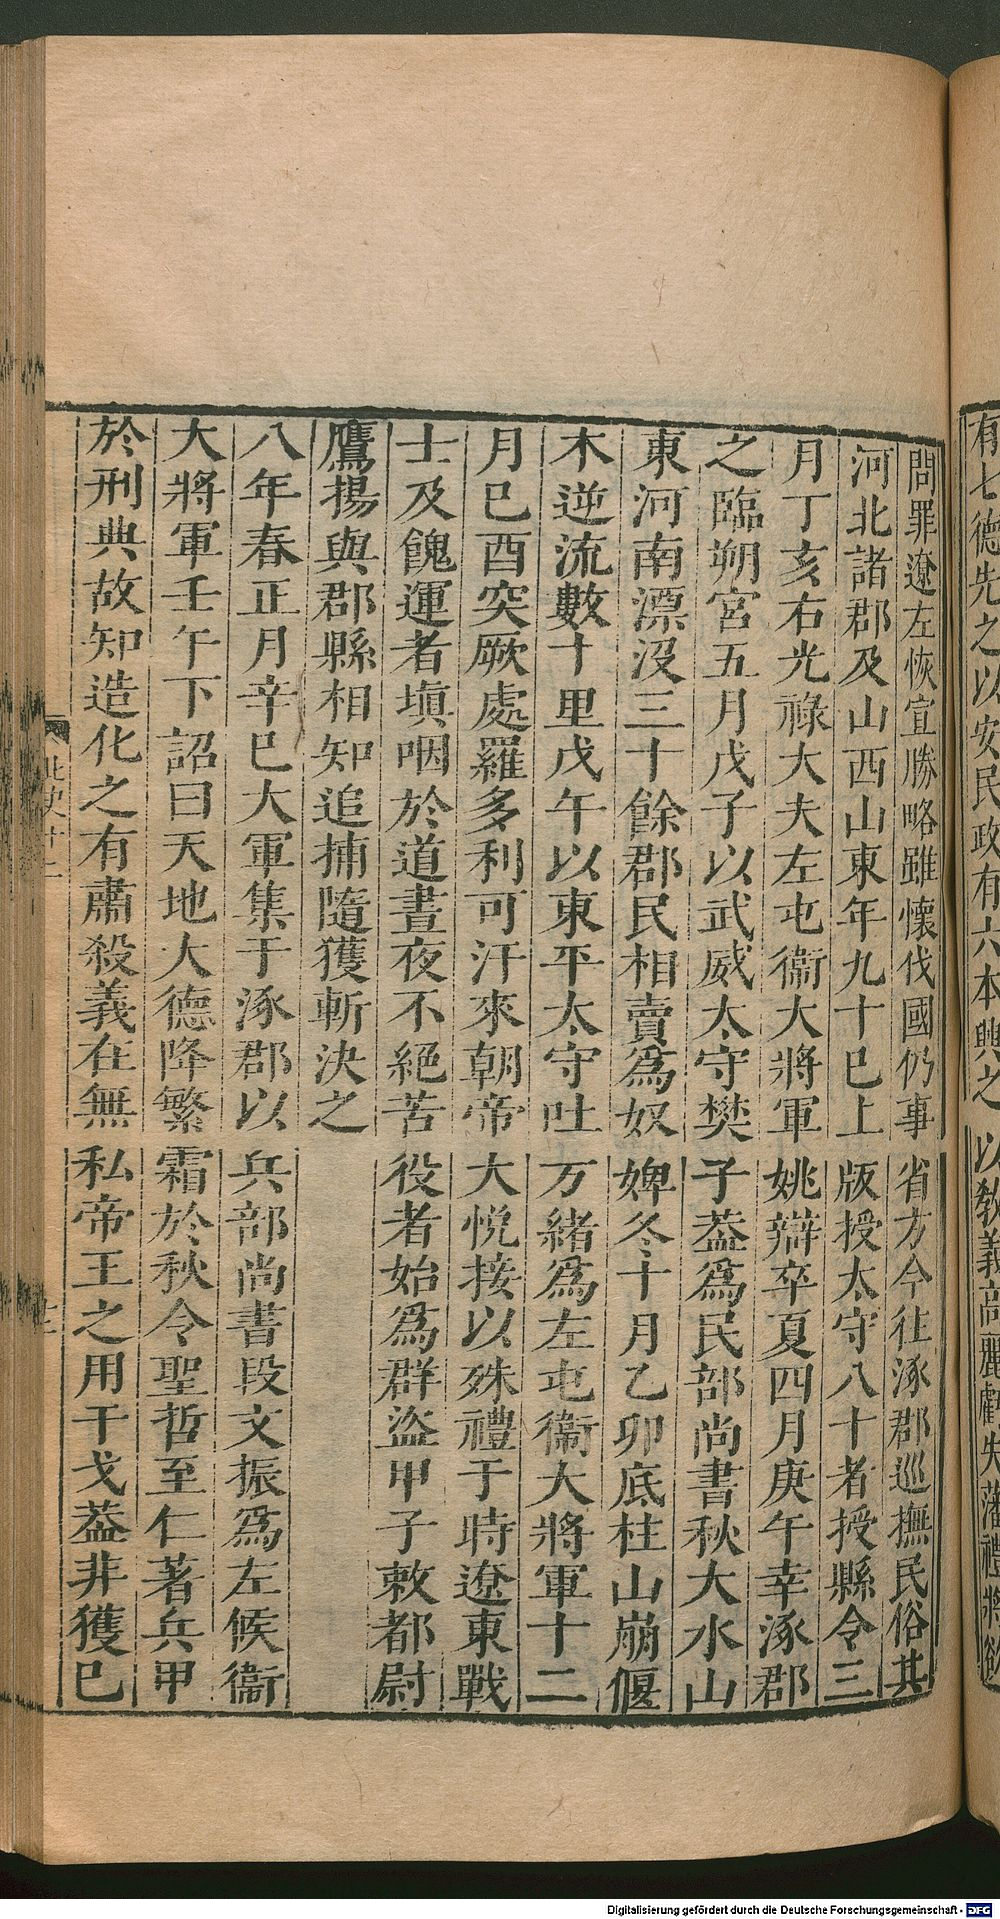 有七德先之以安民政有六本興之以教義高麗虧失藩禮將欲
問罪遼左恢宣勝略雖懷伐國仍事省方今往涿郡巡撫民俗其
河北諸郡及山西山東年九十巳上版授太守八十者授縣令三
月丁亥右光祿大夫左屯衞大將軍姚辯卒夏四月庚午幸涿郡
之臨朔宮五月戊子以武威太守樊子葢爲民部尚書秋大水山
東河南漂沒三十餘郡民相賣爲奴婢冬十月乙卯底柱山崩偃
木逆流數十里戊午以東平太守吐万緒爲左屯衞大將軍十二
月巳酉突厥處羅多利可汗來朝帝大悅接以殊禮于時遼東戰
士及餽運者塡咽於道晝夜不絕苦役者始爲群盜甲子敕都尉
鷹揚與郡縣相知追捕隨獲斬決之
八年春正月辛巳大軍集于涿郡以兵部尚書段文振爲左候衞
大將軍壬午下詔曰天地大德降繁霜於秋令聖哲至仁著兵甲
於刑典故知造化之有肅殺義在無私帝王之用干戈葢非獲巳
北史十二
Digitalisierung gefördert durch die Deutsche Forschungsgemeinschaft - DFG